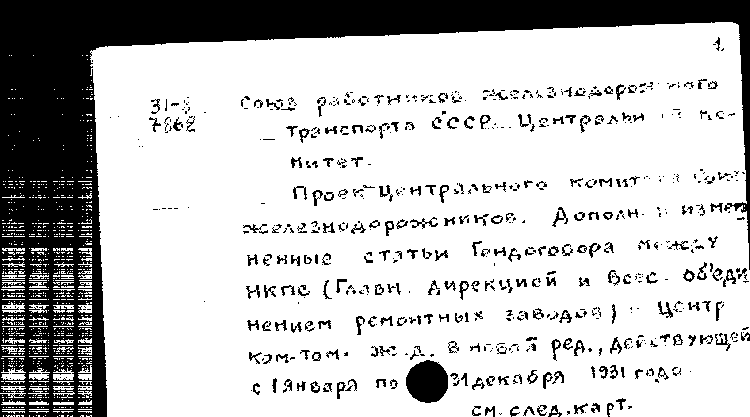 1
31-5
7862
Союз работников железнодорожного
транспорта СССР. Центральный ко-
митет.
Проект Центрального комитета Союза
железнодорожников. Дополн. и изме-
ненные статьи Гендоговора между
НКПС (Главн. дирекцией и Всес. объеди
нением ремонтных заводов) и Центр
ком-том. ж.д. в новой ред., действующей
с 1 января по 31 декабря 1931 года.
см. след. карт.